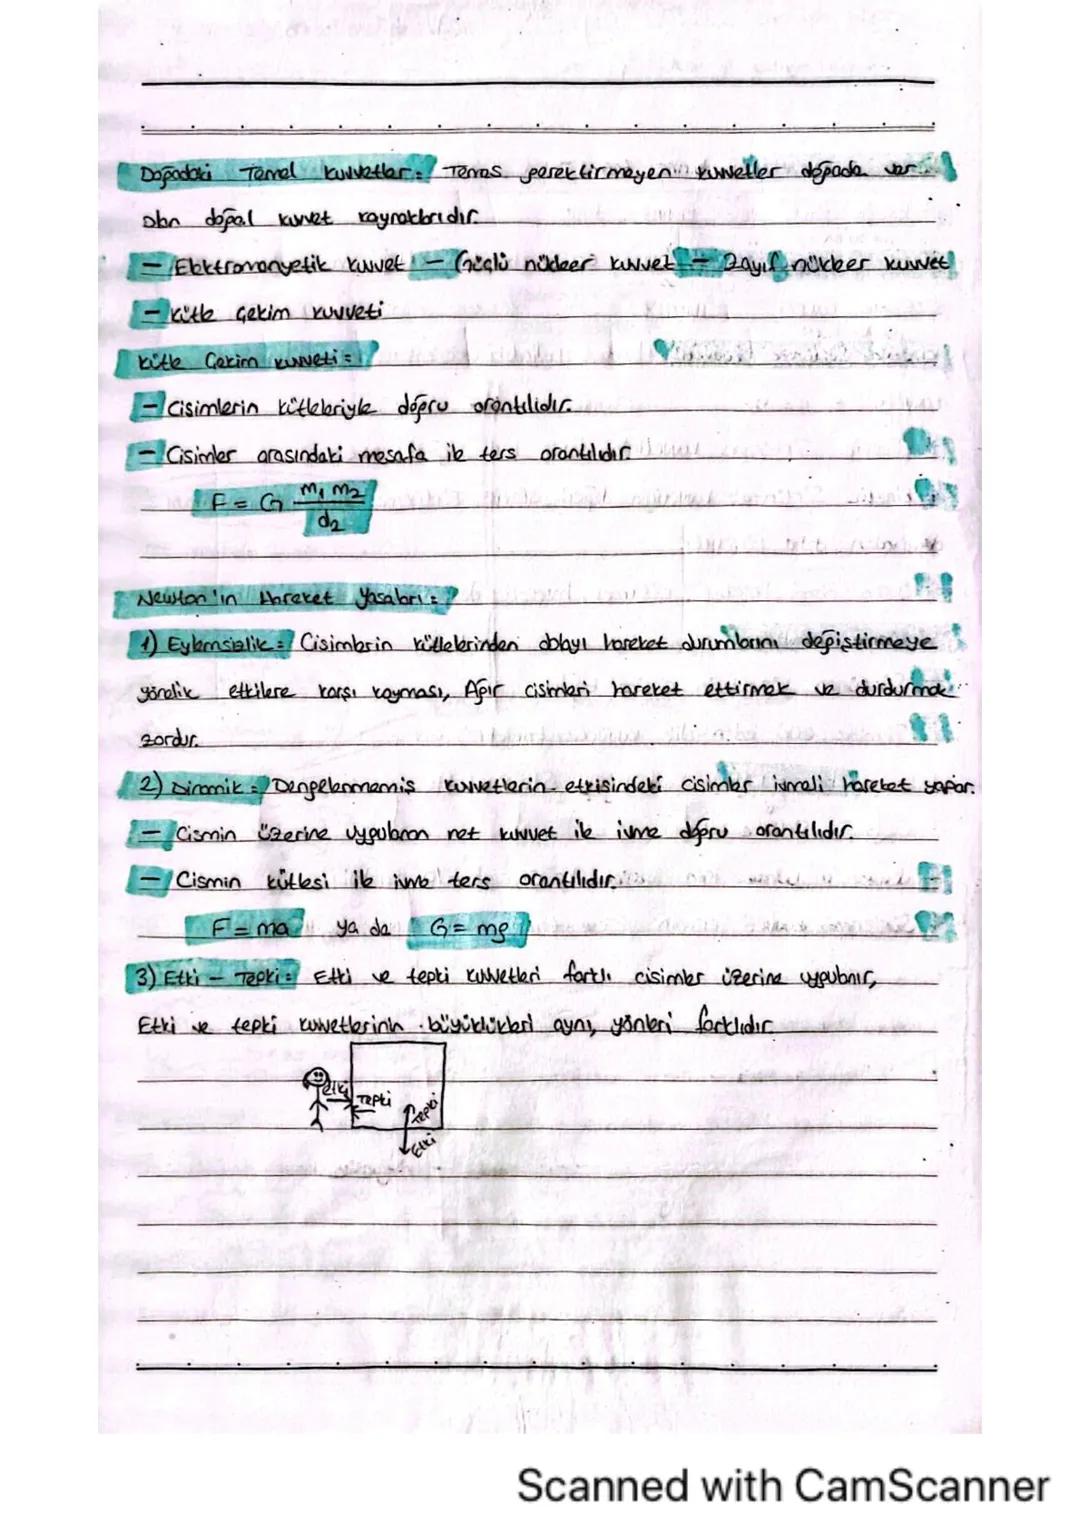 Doğadaki Temel kuvvetler = Temas gerektirmeyen kuvvetler doğada var
olan doğal kuvvet kaynaklarıdır.
- Elektromanyetik kuvvet - Güçlü nükleer kuvvet - Zayıf nükleer kuvvet
- Kütle çekim kuvveti
Kütle Çekim kuvveti =
- Cisimlerin kütleleriyle doğru orantılıdır.
- Cisimler arasındaki mesafe ile ters orantılıdır.
F = G m₁ m₂ / d₂
Newton'ın Hareket Yasaları =
1) Eylemsizlik = Cisimlerin kütlelerinden dolayı hareket durumlarını değiştirmeye
yönelik etkilere karşı koyması, Ağır cisimleri hareket ettirmek ve durdurmak
zordur.
2) Dinamik = Dengelenmemiş kuvvetlerin etkisindeki cisimler ivmeli hareket yapar.
- Cismin üzerine uygulanan net kuvvet ile ivme doğru orantılıdır.
- Cismin kütlesi ile ivme ters orantılıdır.
F = ma ya da G = mg
3) Etki - Tepki = Etki ve tepki kuvvetleri farklı cisimler üzerine uygulanır,
Etki ve tepki kuvvetlerinin büyüklükleri aynı, yönleri farklıdır.
etki
Tepki
Tepki
Etki
Scanned with CamScanner